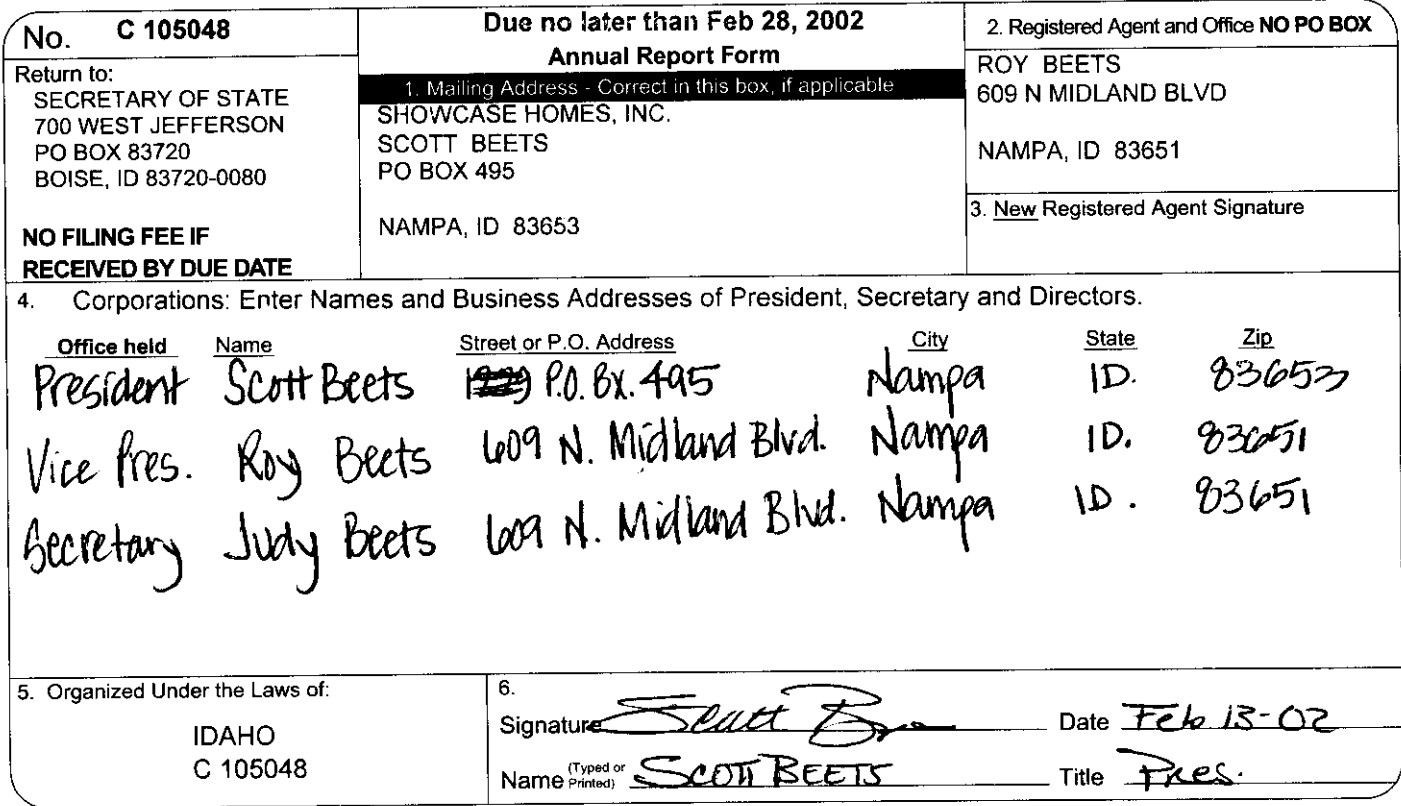 No. C 105048
Return to:
SECRETARY OF STATE
700 WEST JEFFERSON
PO BOX 83720
BOISE, ID 83720-0080
NO FILING FEE IF
RECEIVED BY DUE DATE
Due no later than Feb 28, 2002
Annual Report Form
1. Mailing Address - Correct in this box, if applicable
SHOWCASE HOMES, INC.
SCOTT BEETS
PO BOX 495
NAMPA, ID 83653
2. Registered Agent and Office NO PO BOX
ROY BEETS
609 N MIDLAND BLVD
NAMPA, ID 83651
3. New Registered Agent Signature
4. Corporations: Enter Names and Business Addresses of President, Secretary and Directors.
Office held Name Street or P.O. Address City State Zip
President Scott Beets P.O. Bx. 495 Nampa ID. 83653
Vice Pres. Roy Beets 609 N. Midland Blvd. Nampa ID. 83651
Secretary Judy Beets 609 N. Midland Blvd. Nampa ID. 83651
5. Organized Under the Laws of:
IDAHO
C 105048
6.
Signature Scott Date Feb 13-02
Name (Typed or Printed) SCOTT BEETS Title Pres.